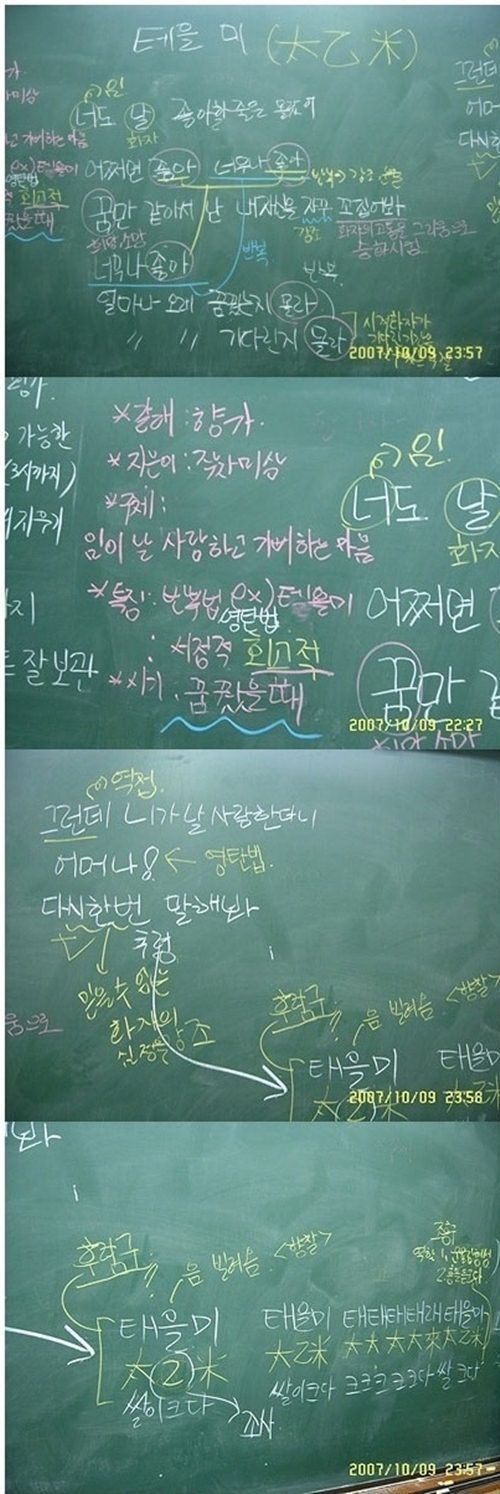 테을 미 (太乙米)
임
너도 날 좋아할 줄은 몰랐어
화자
어쩌면 좋아 너무나 좋아
반복 → 강조
꿈만 같아서 난 내 자신을 자꾸 꼬집어봐
희망, 소망
강조
화자의 고통을 그리움으로
승화시킴
너무나 좋아
반복
얼마나 오래 꿈꿨는지 몰라
반복
〃 〃 기다린지 몰라
시적화자가
2007/10/09 23:57
가능한
*갈래 : 향가.
*지은이 : 작자미상
*주제 :
임이 날 사랑하고 기뻐하는 마음
*특징 : 반복법 ex) 테을미
영탄법
: 서정적 회고적
*시기 : 꿈꿨을때
잘 보관
임.
너도 날
화자
어쩌면
꿈만
2007/10/09 22:27
역접.
그런데 니가 날 사랑한다니
어머나! ← 영탄법.
다시한번 말해봐
후렴
믿을 수 없는
화자의
심정을 강조
후렴구 음 빌려옴 <향찰>
태을미 태을미
太乙米 太乙米
2007/10/09 23:58
후렴구 음 빌려옴. <향찰>
태을미 태을미 태태태태래 태을미
太乙米 太乙米 太太太太來太乙米
쌀이크다 쌀이크다 크크크크다 쌀크다
조사
2007/10/09 23:57